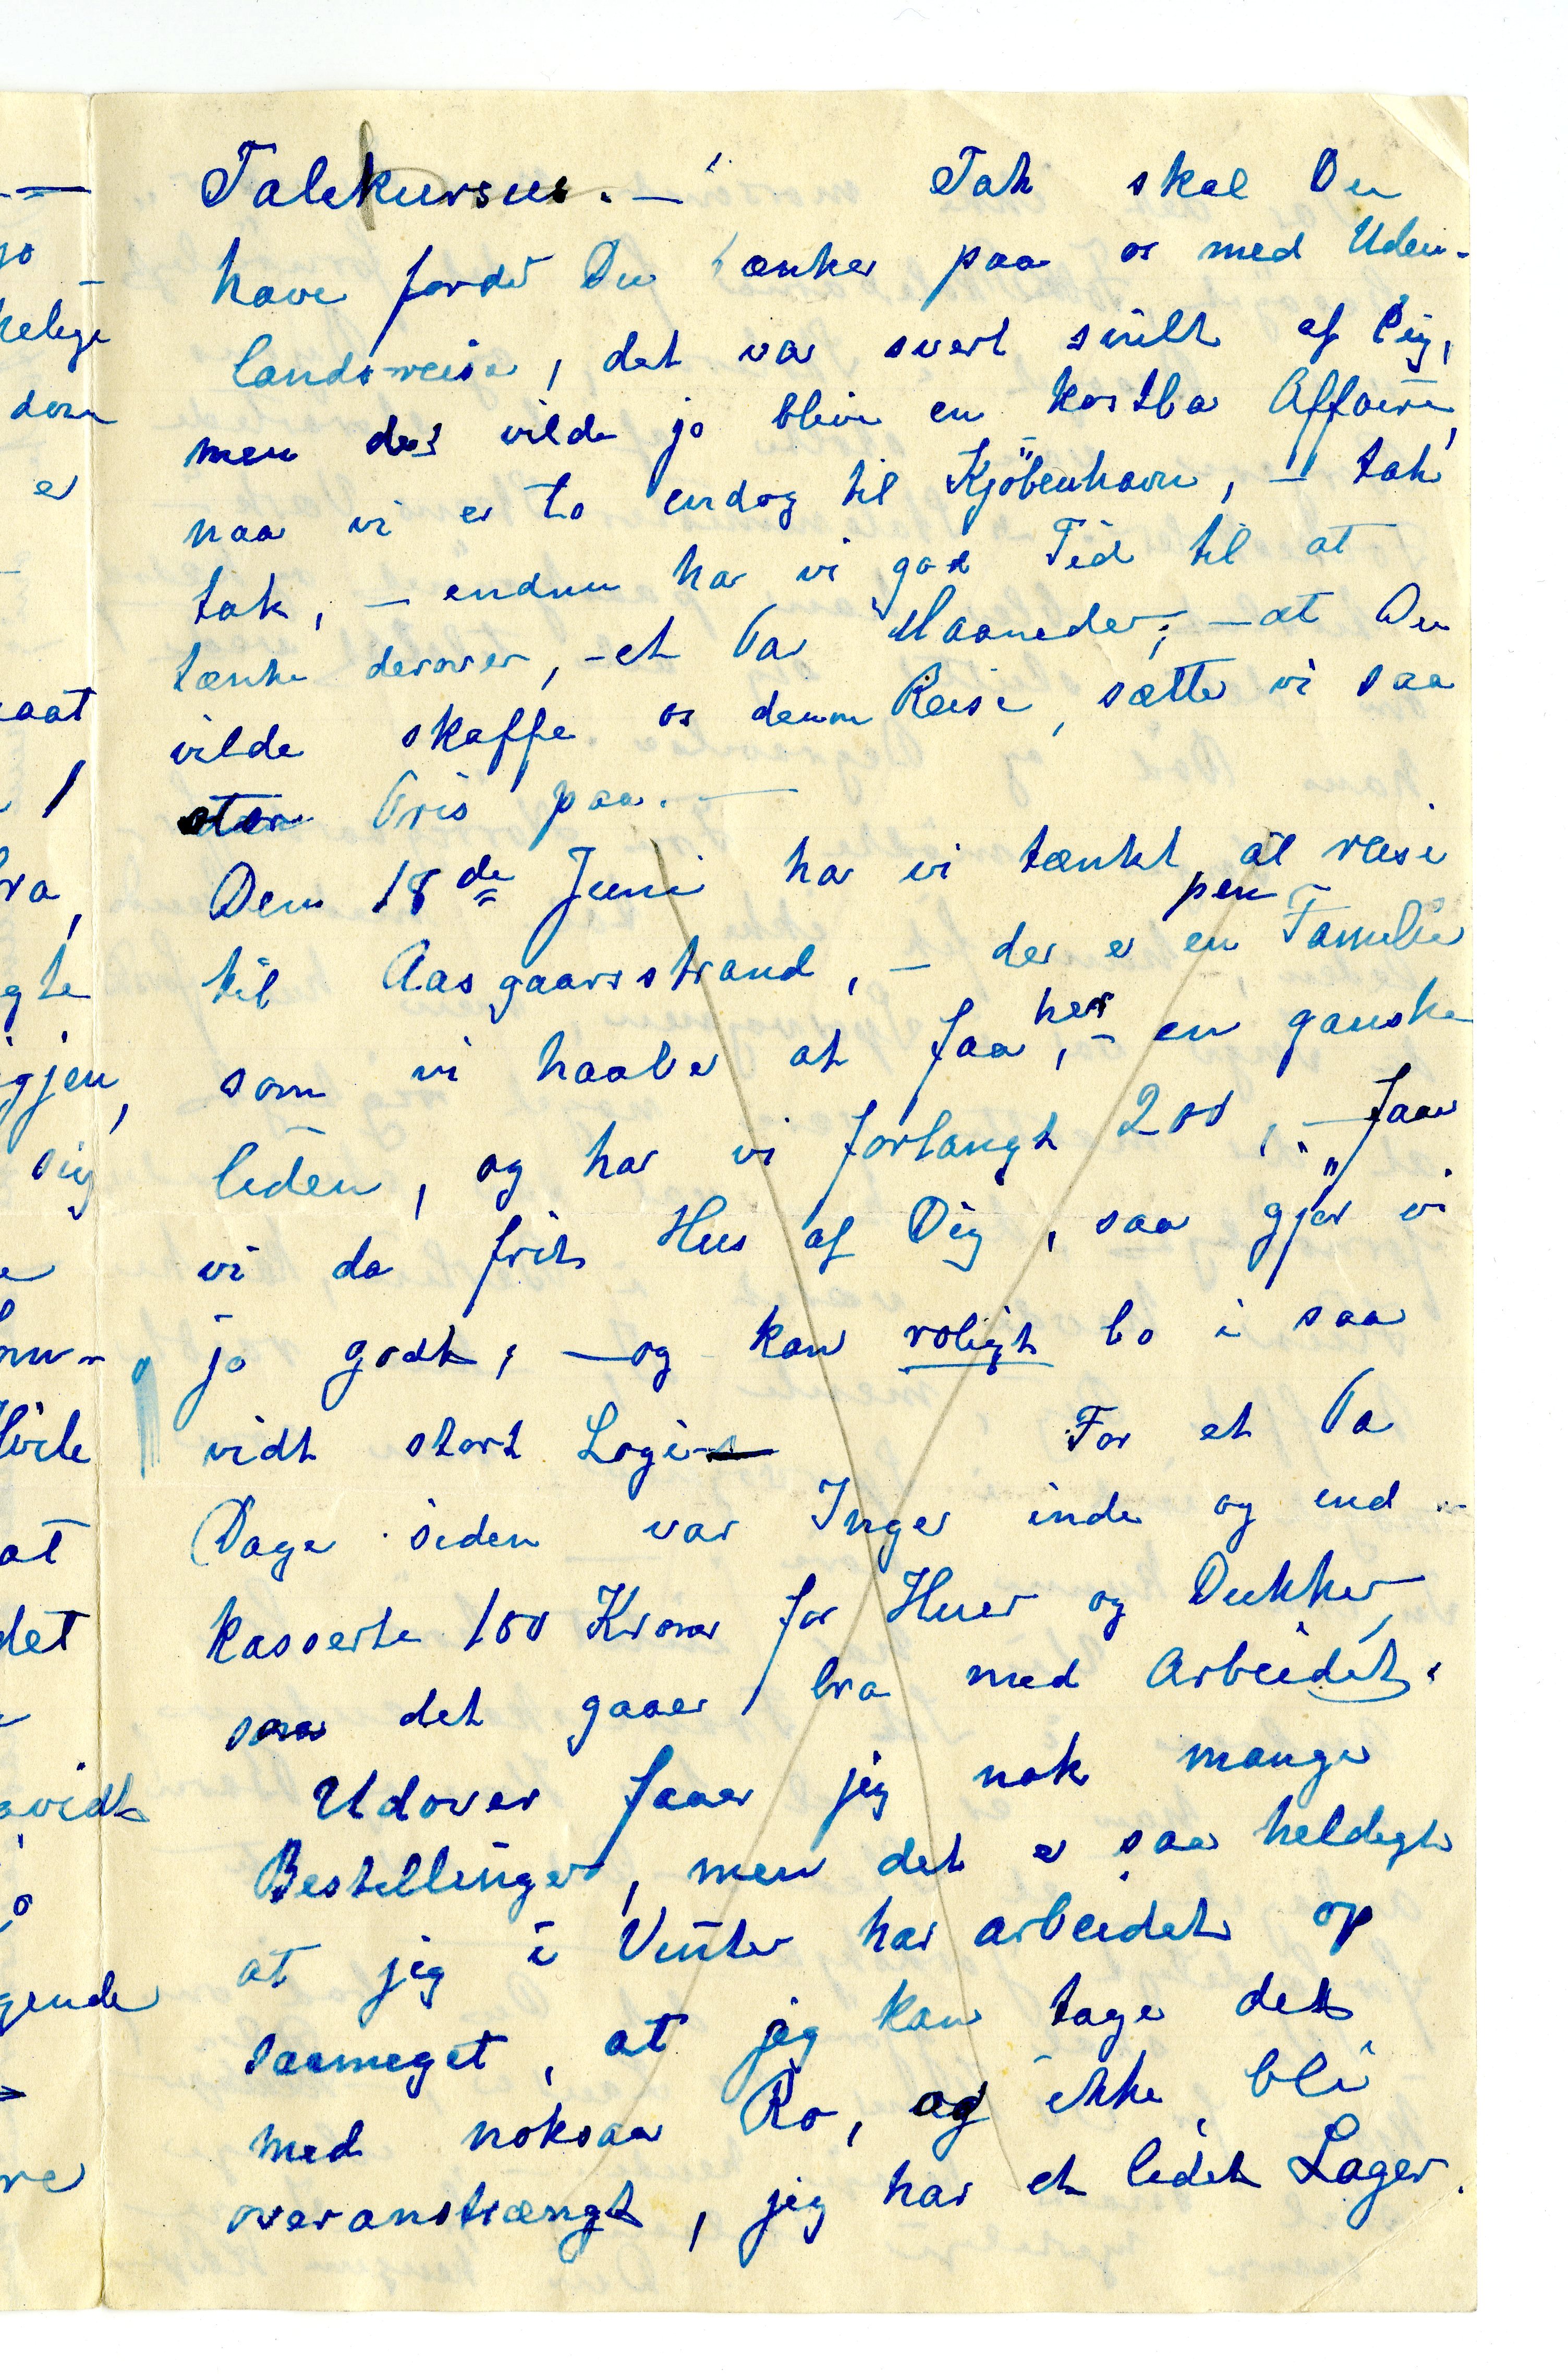 Talekursus. — Tak skal Du
have fordi Du tænker paa os med Uden-
landsreise, det var svert snilt af Dig,
men det vilde jo blive en kostba Affaire,
naar vi er to endog til Kjöbenhavn, — tak
tak, — endnu har vi god Tid til at
tænke derover, - et Par Maaneder; — at Du
vilde skaffe os denne Reise, sætter vi saa
stor Pris paa. —
Den 18de Juni har vi tænkt at reise
til Aasgaardsstrand, — der er en pen Familie
som vi haaber at faa her, - en ganske
liden, og har vi forlangt 200, — „ Faar
vi da frit Hus af Dig, saa gjør vi
jo godt, — og kan roligt bo i saa
vidt stort Logi — For et Par
Dage siden var Inger inde og ind-
kasserte 100 Kroner for Huer og Dukker,
saa det gaaer bra med Arbeidet.
Udover faaer jeg nok mange
Bestillinger, men det er saa heldigt
at jeg i Vinter har arbeidet op
saameget, at jeg kan tage det
med noksaa Ro, og ikke bli
overanstrængt, jeg har et lidet Lager.